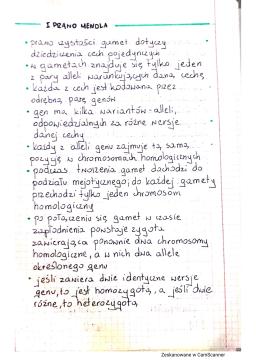 I PRAWO MENDLA
• prawo czystości gamet dotyczy
dziedziczenia cech pojedynczych
• w gametach znajduje się tylko jeden
z pary alleli warunkujących daną cechę
• każda z cech jest kodowana przez
odrębną parę genów
• gen ma kilka wariantów-alleli,
odpowiedzialnych za różne wersje
danej cechy
• każdy z alleli genu zajmuje tą samą
pozycję w chromosomach homologicznych
• podczas tworzenia gamet dochodzi do
podziału mejotycznego; do każdej gamety
przechodzi tylko jeden chromosom
homologiczny
• po połączeniu się gamet w czasie
zapłodnienia powstaje zygota
zawierająca ponownie dwa chromosomy
homologiczne, a w nich dwa allele
określonego genu
• jeśli zawiera dwie identyczne wersje
genu, to jest homozygotą, a jeśli dwie
różne, to heterozygotą
Zeskanowane w CamScanner